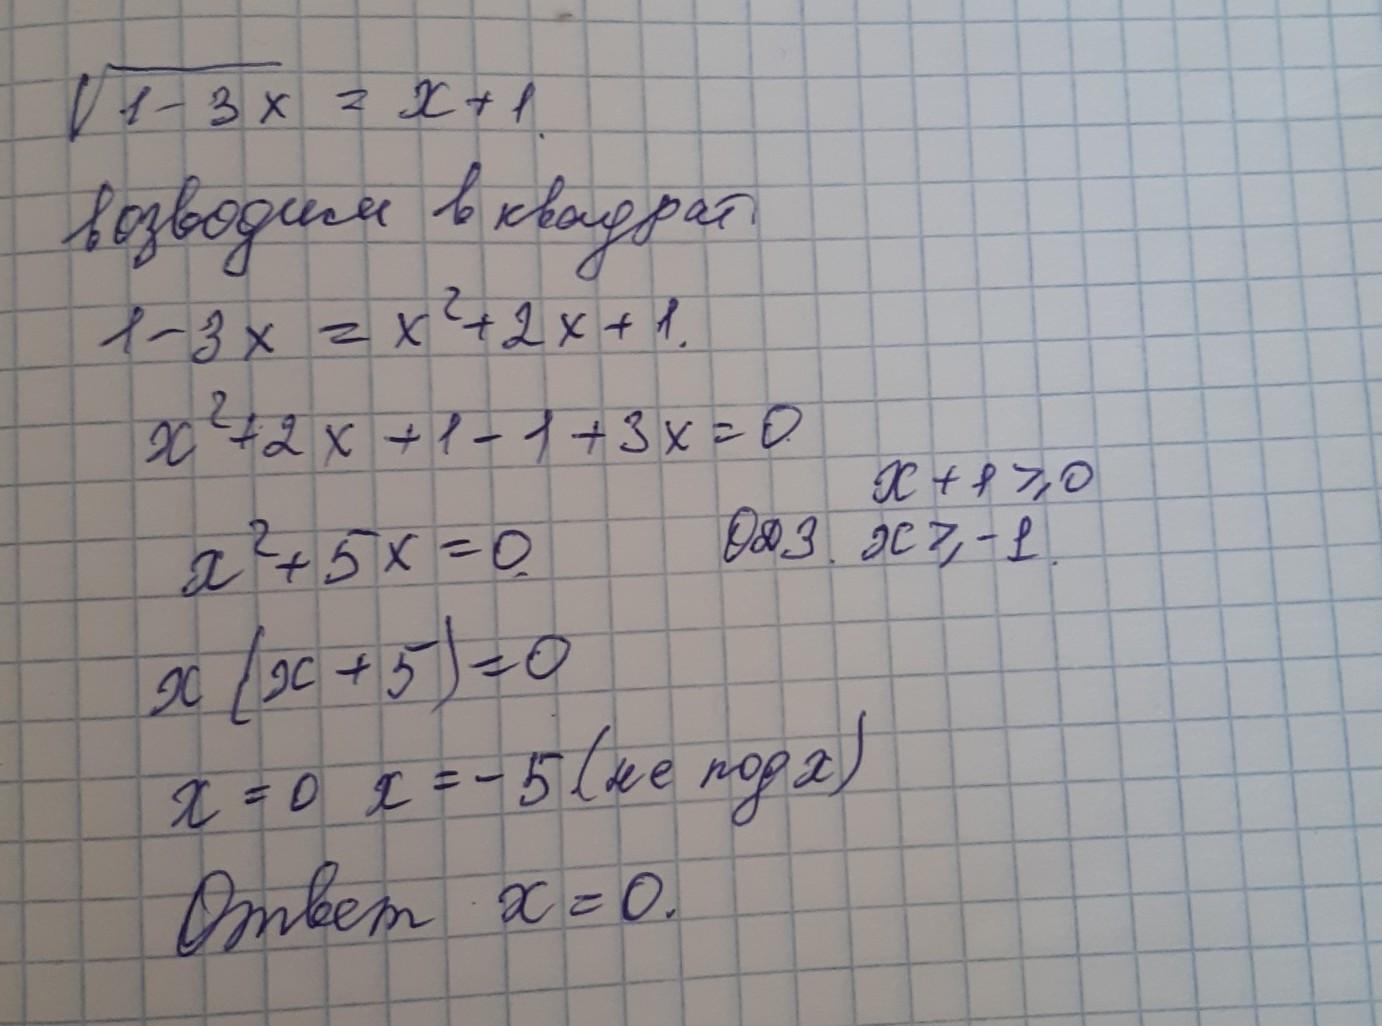 √1-3x = x+1.
возводим в квадрат.
1-3x = x²+2x+1.
x²+2x+1-1+3x=0.
x+1⩾0
x²+5x=0. ОДЗ. x⩾-1.
x(x+5)=0
x=0 x=-5(не подх)
Ответ x=0.